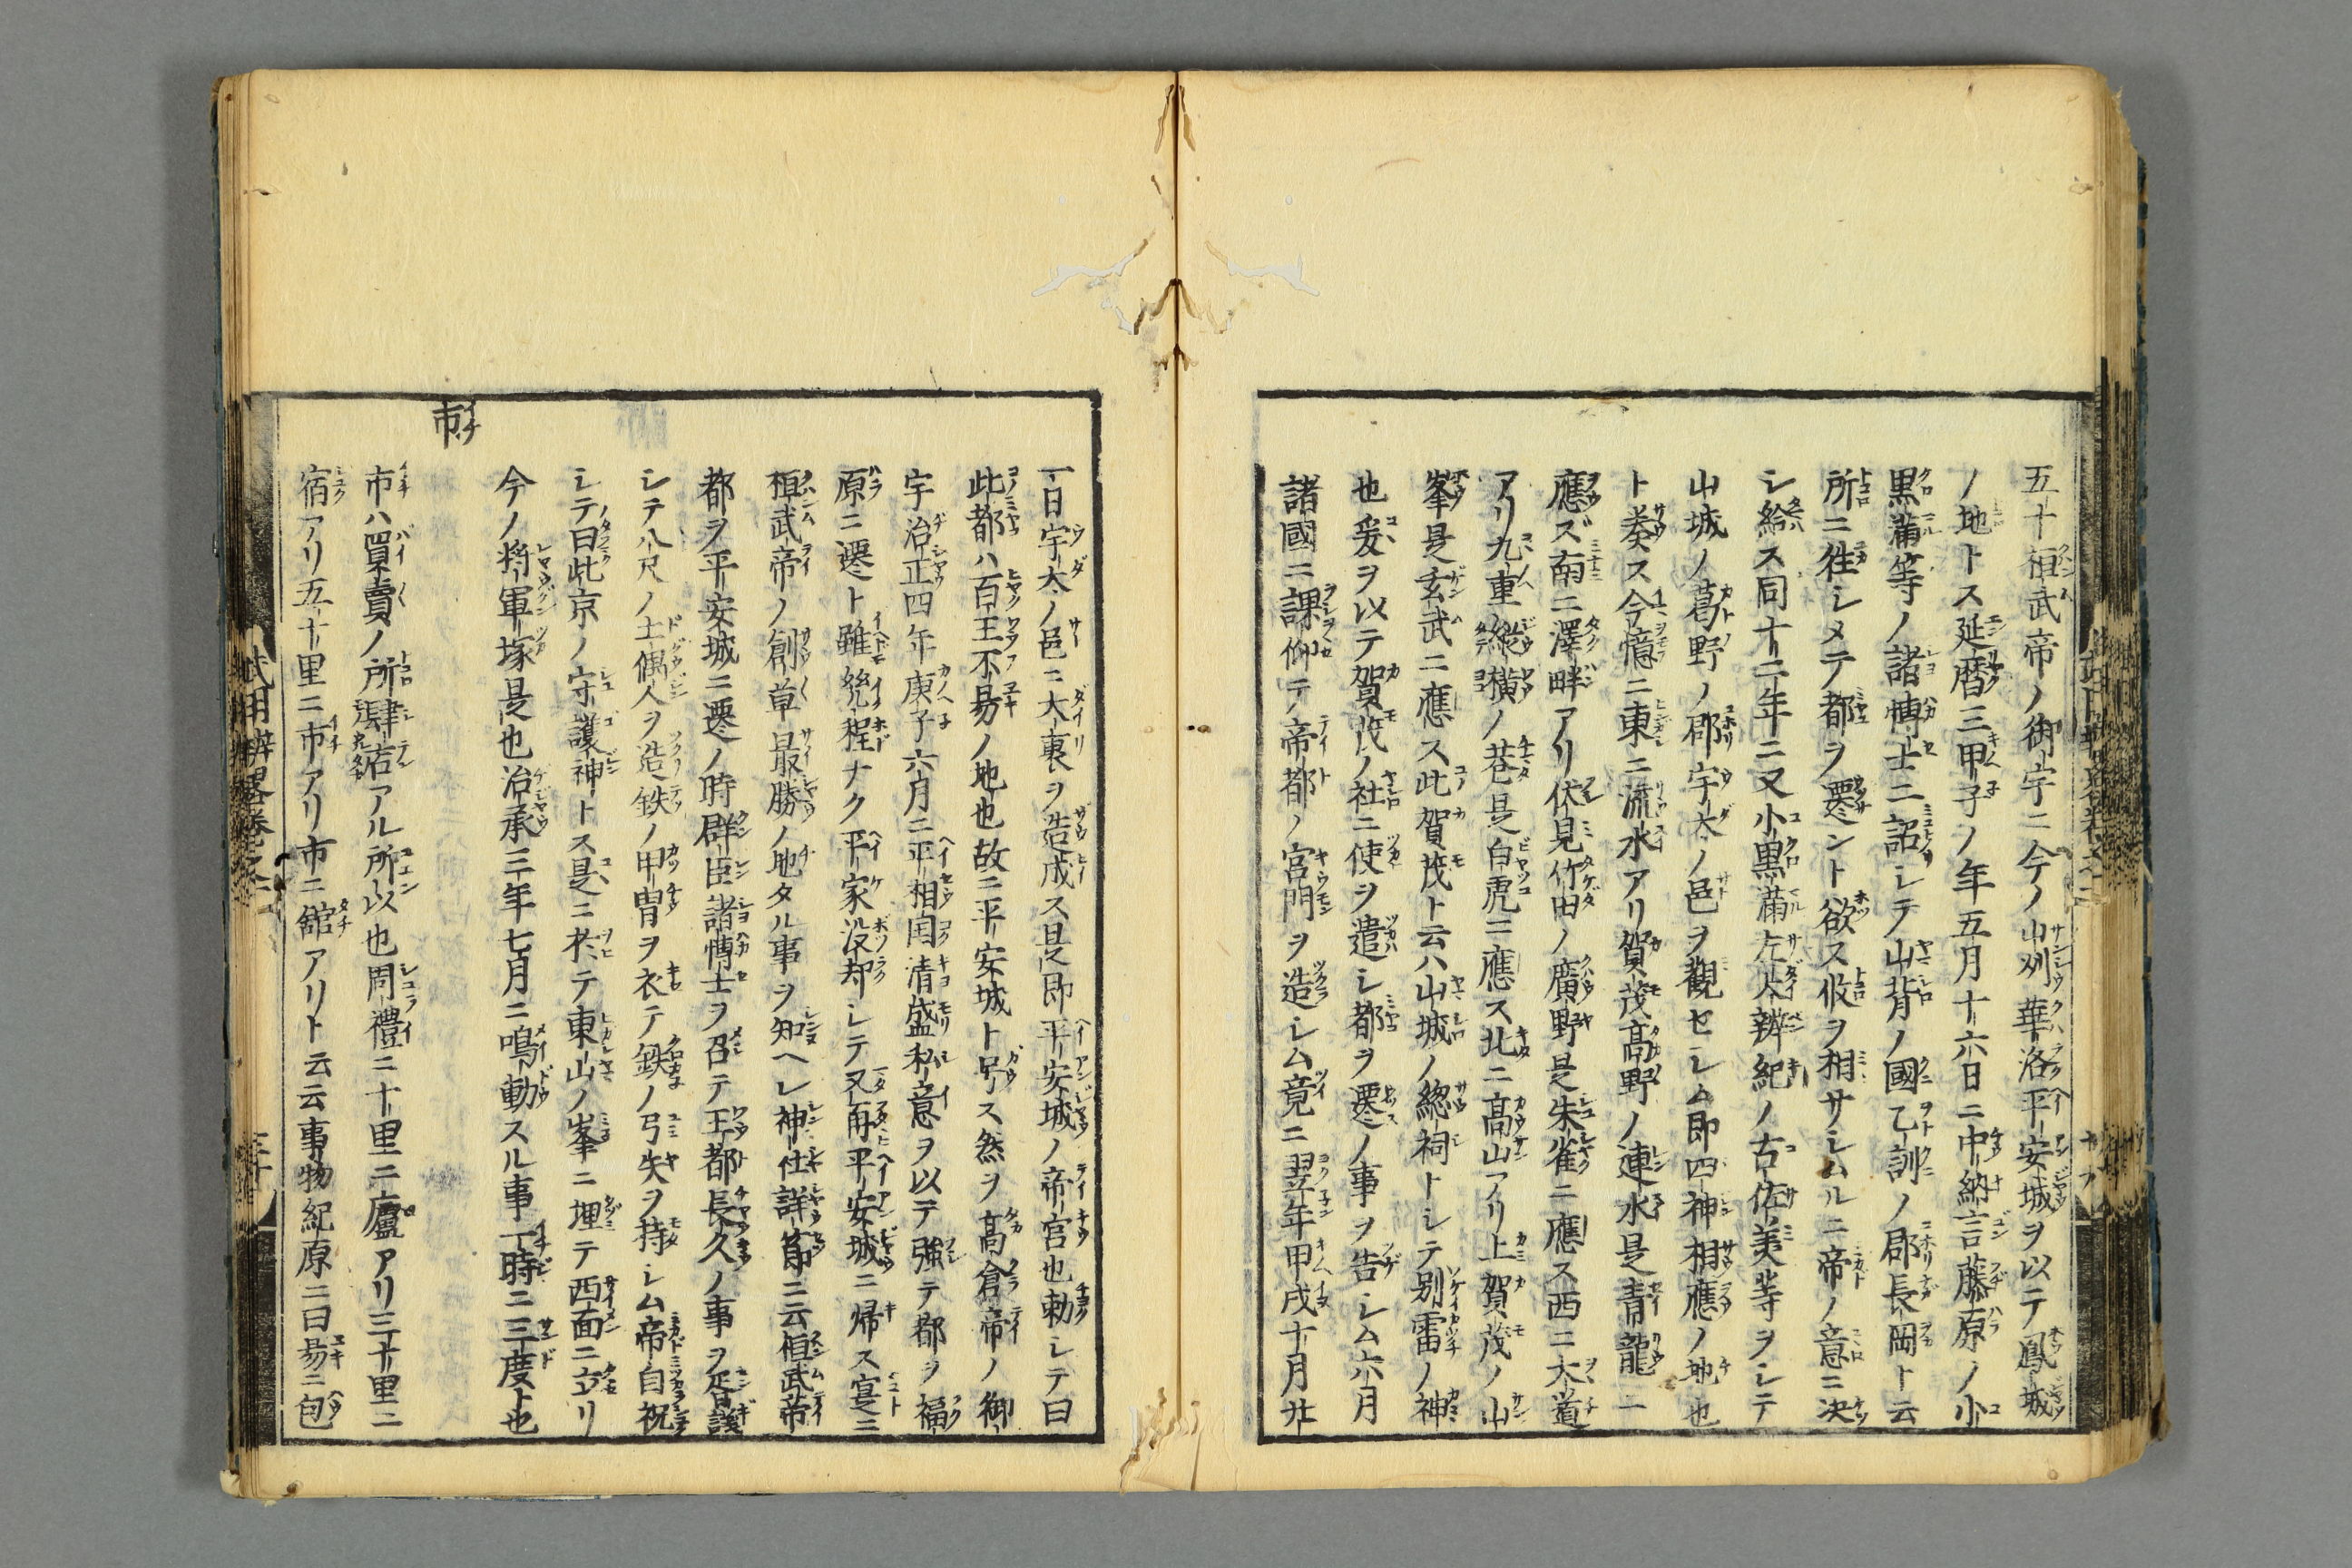 五十桓武帝ノ御宇ニ今ノ山州華洛平安城ヲ以テ鳳城
ノ地トス延暦三甲子ノ年五月十六日ニ中納言藤原ノ小
黒蒲等ノ諸博士ニ詔シテ山背ノ國乙訓ノ郡長岡ト云
所ニ徃シメテ都ヲ遷サント欲ス攸ヲ相サシムルニ帝ノ意ニ决
シ給ス同十二年ニ又小黒蒲左大辨紀ノ古佐美等ヲシテ
山城ノ葛野ノ郡宇太ノ邑ヲ觀セシム即四神相應ノ地也
ト奏ス今憶ニ東ニ流水アリ賀茂高野ノ連水是青龍ニ
應ズ南ニ澤畔アリ伏見竹田ノ廣野是朱雀ニ應ス西ニ大道
アリ九重縱橫ノ巷是白虎ニ應ス北ニ高山アリ上賀茂ノ山
峯是玄武ニ應ス此賀茂ト云ハ山城ノ總祠トシテ別雷ノ神
也爰ヲ以テ賀茂ノ社ニ使ヲ遣シ都ヲ遷ノ事ヲ告シム六月
諸國ニ課仰テ帝都ノ宮門ヲ造シム竟ニ翌年甲戌十月廿
一日宇太ノ邑ニ大裏ヲ造成ス是即平安城ノ帝宮也勅シテ曰
此都ハ百王不易ノ地也故ニ平安城ト号ス然ヲ高倉帝ノ御
宇治正四年庚子六月ニ平相国清盛私意ヲ以テ強テ都ヲ福
原ニ遷ト雖幾程ナク平家没却シテ又再平安城ニ帰ス寔ニ
桓武帝ノ創草最勝ノ地タル事ヲ知ヘシ神社詳節ニ云桓武帝
都ヲ平安城ニ遷ノ時群臣諸博士ヲ召テ王都長久ノ事ヲ僉議
シテ八尺ノ土偶人ヲ造鉄ノ甲冑ヲ衣テ鉄ノ弓矢ヲ持シム帝自祝
シテ曰此京ノ守護神トス是ニ於テ東山ノ峯ニ埋テ西面ニ立リ
今ノ將軍塚是也治承三年七月ニ鳴動スル事一時ニ三度ト也
市
市ハ買賣ノ所肆店アル所以也周禮ニ十里ニ廬アリ三十里ニ
宿アリ五十里ニ市アリ市ニ館アリト云云事物紀原ニ曰易ニ包
武用辨畧巻之二
三十